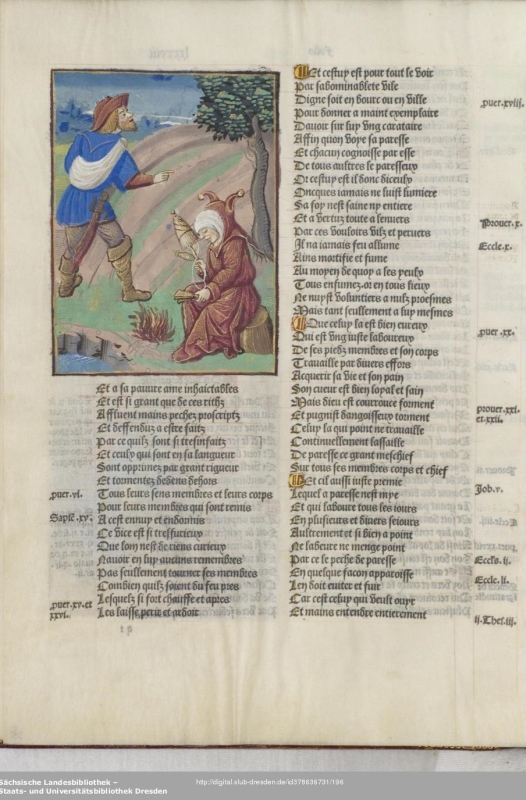 Et a sa pauure ame inhaictables
Et est si grant que de ces rithz
Affluent mains pechez proscriptz
Et deffenduz a estre faitz
Par ce quilz sont si tresinfaitz
Et ceulx qui sont en sa langueur
Sont opprimez par grant rigueur
Et tormentez dedens dehors
puer.vi.
Tous leurs sens membres et leurs corps
Pour leurs membres qui sont remis
Sapiē.xv.
A cest ennuy et endormis
Ce vice est si tresfurieux
Que lom nest de riens curieux
Nauoir en luy aucuns remembres
Pas seullement tourner ses membres
Combien quilz soient du feu pres
Lesquelz si fort chauffe et apres
puer.xv.et
xxvi.
Les laisse perit et ardoir
Et cestuy est pour tout le voir
Par sabominablete vile
Digne soit en bourc ou en ville
puer.xviii.
Pour donner a maint exemplaire
Dauoir sur luy vng caratatre
Affin quon voye sa paresse
Et chacun cognoisse par esse
De tous aultres le paresseux
Or cestuy est il donc diceulx
Oncques iamais ne suist lumiere
Sa foy nest saine ny entiere
Et a vertuz toute a senuers
Prouer.x.
Par ces vouloirs vilz et peruers
Il na iamais feu allume
Eccle.x.
Ains mortifie et fume
Au moyen de quoy a ses yeulx
Tous enfumez.oi en tous lieux
Ne nuyst voluntiers a nulz proesmes
Mais tant seullement a luy mesmes
Que celuy la est bien eureux
puer.xx.
Qui est vng iuste laboureux
De ses piedz membres et son corps
Trauaille par diuers effors
Acquerir sa vie et son pain
Son cueur est bien loyal et sain
Mais dieu est courrouce forment
prouer.xxi.
et.xxii.
Et pugnist dangoisseux torment
Celuy la qui point ne trauaille
Continuellement lassaille
De paresse ce grant meschief
Sur tous ses membres corps et chief
Et cil aussi iuste premie
Job.v.
Lequel a paresse nest mye
Et qui laboure tous les iours
En plusieurs et diuers seiours
Aultrement et si bien a point
Ne labeure ne menge point
Par ce le peche de paresse
Eccls.ij.
En quelque facon apparoisse
Len doit euiter et fuir
Eccle.ii.
Car cest celuy qui veult ouyr
Et mains entendre entierement
ij.Thes.iii.
Sächsische Landesbibliothek –
Staats- und Universitätsbibliothek Dresden
http://digital.slub-dresden.de/id378636731/196